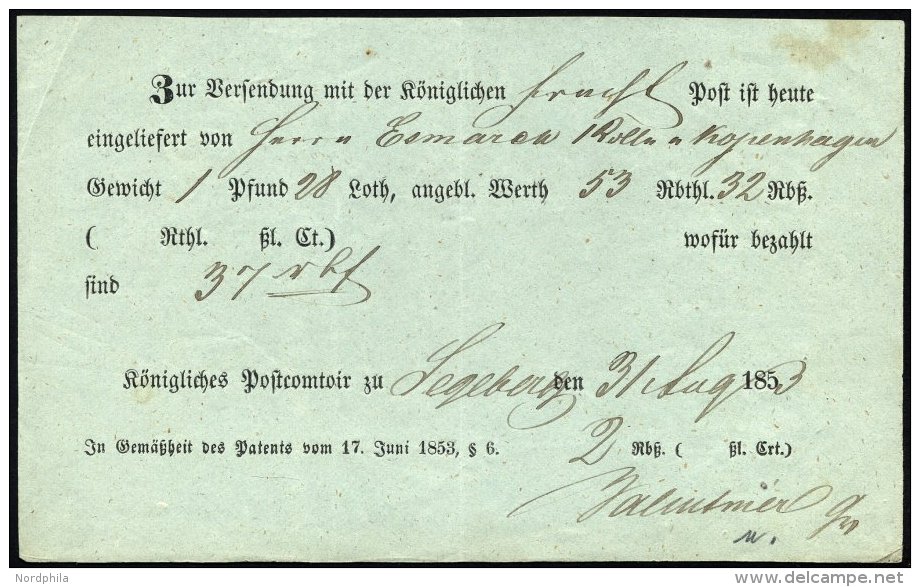 Zur Versendung mit der Königlichen Fracht Post ist heute
eingeliefert von Herrn Esmarch Kopenhagen
Gewicht 1 Pfund 28 Loth, angebl. Werth 53 Rbthl. 32 Rbß.
( Rthl. ßl. Ct.) wofür bezahlt
sind 37 rbß
Königliches Postcomtoir zu Segeberg den 31 Aug 1853
In Gemäßheit des Patents vom 17. Juni 1853, § 6. 2 Rbß. ( ßl. Crt.)
Nordphila
delcampe.net